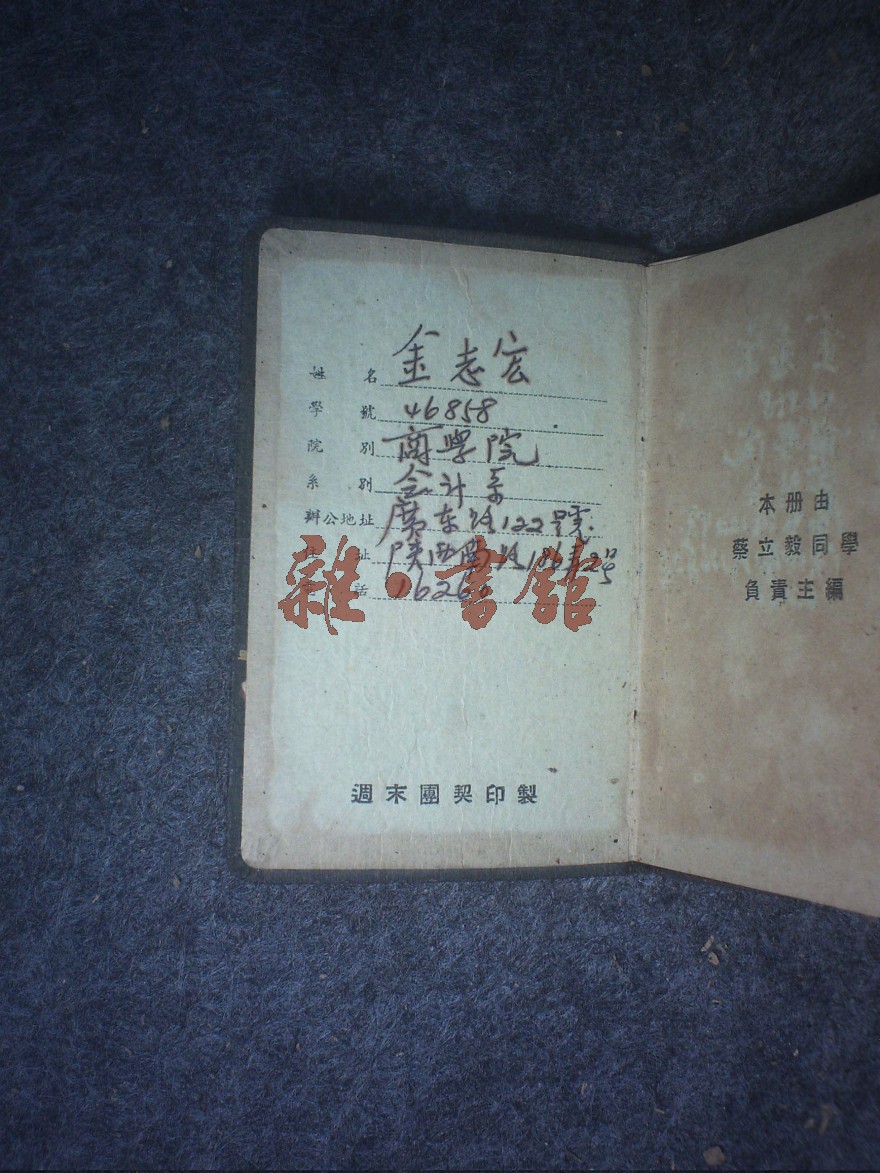 姓名 金志宏
學號 46858
院別 商學院
系別 会计系
辦公地址 廣东路122號
址 陕西南路186
話 1626
週末團契印製
本册由
蔡立毅同學
負責主編
雜·書館